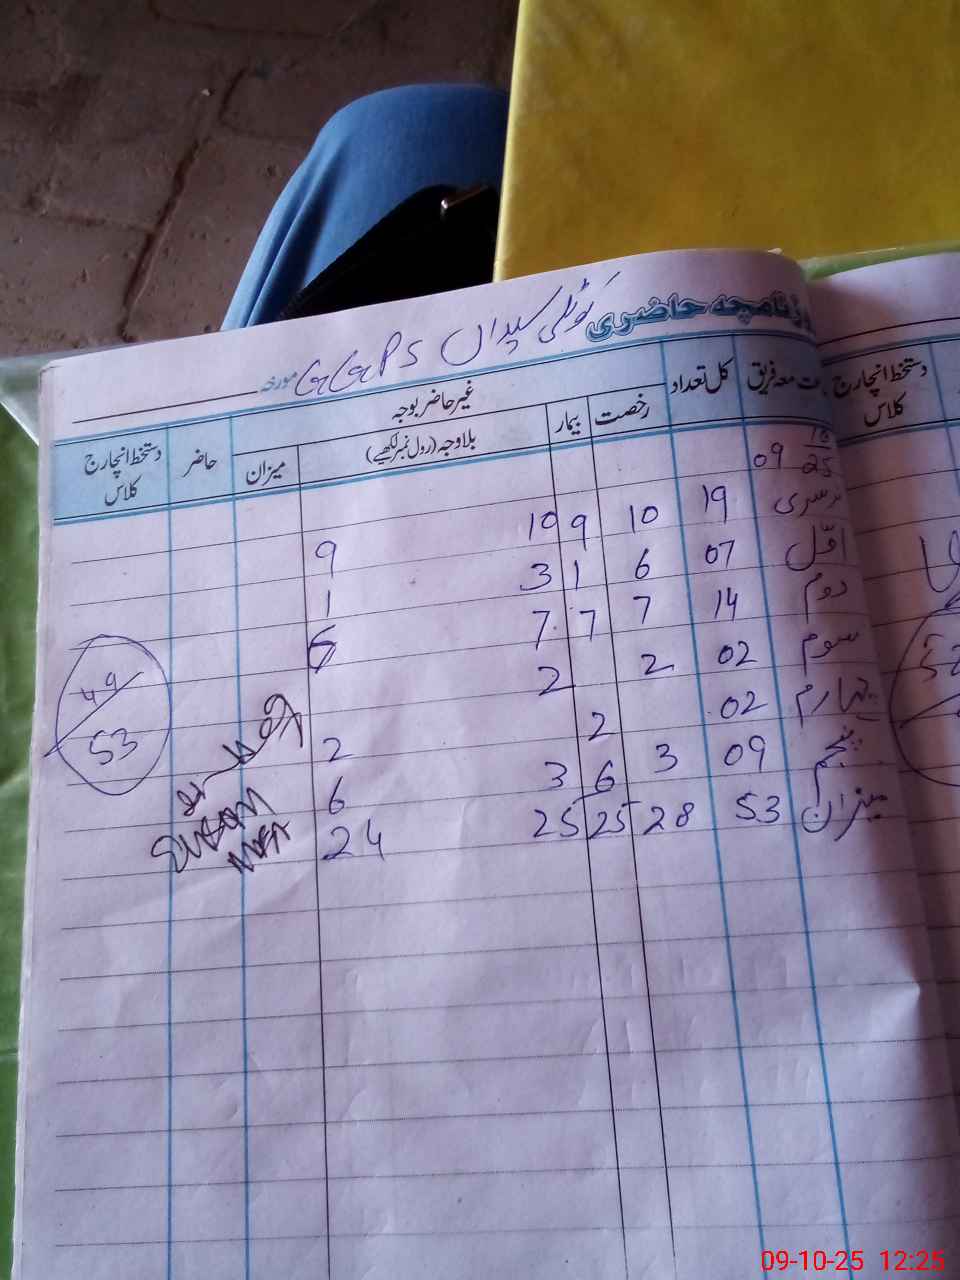 روزنامچہ حاضری
GGPS کوٹلی سیداں
مورخہ
جماعت معہ فریق کل تعداد غیر حاضر بوجہ حاضر دستخط انچارج کلاس
رخصت بیمار بلاوجہ (رول نمبر لکھیے) میزان
09 10 25
نرسری 19 10 9 10 9
اوّل 07 6 1 3 1
دوم 14 7 7 7 6
سوم 02 2 2
چہارم 02 2 2
پنجم 09 3 6 3 6
میزان 53 28 25 25 24
49
53
دستخط انچارج
کلاس
09-10-25 12:25